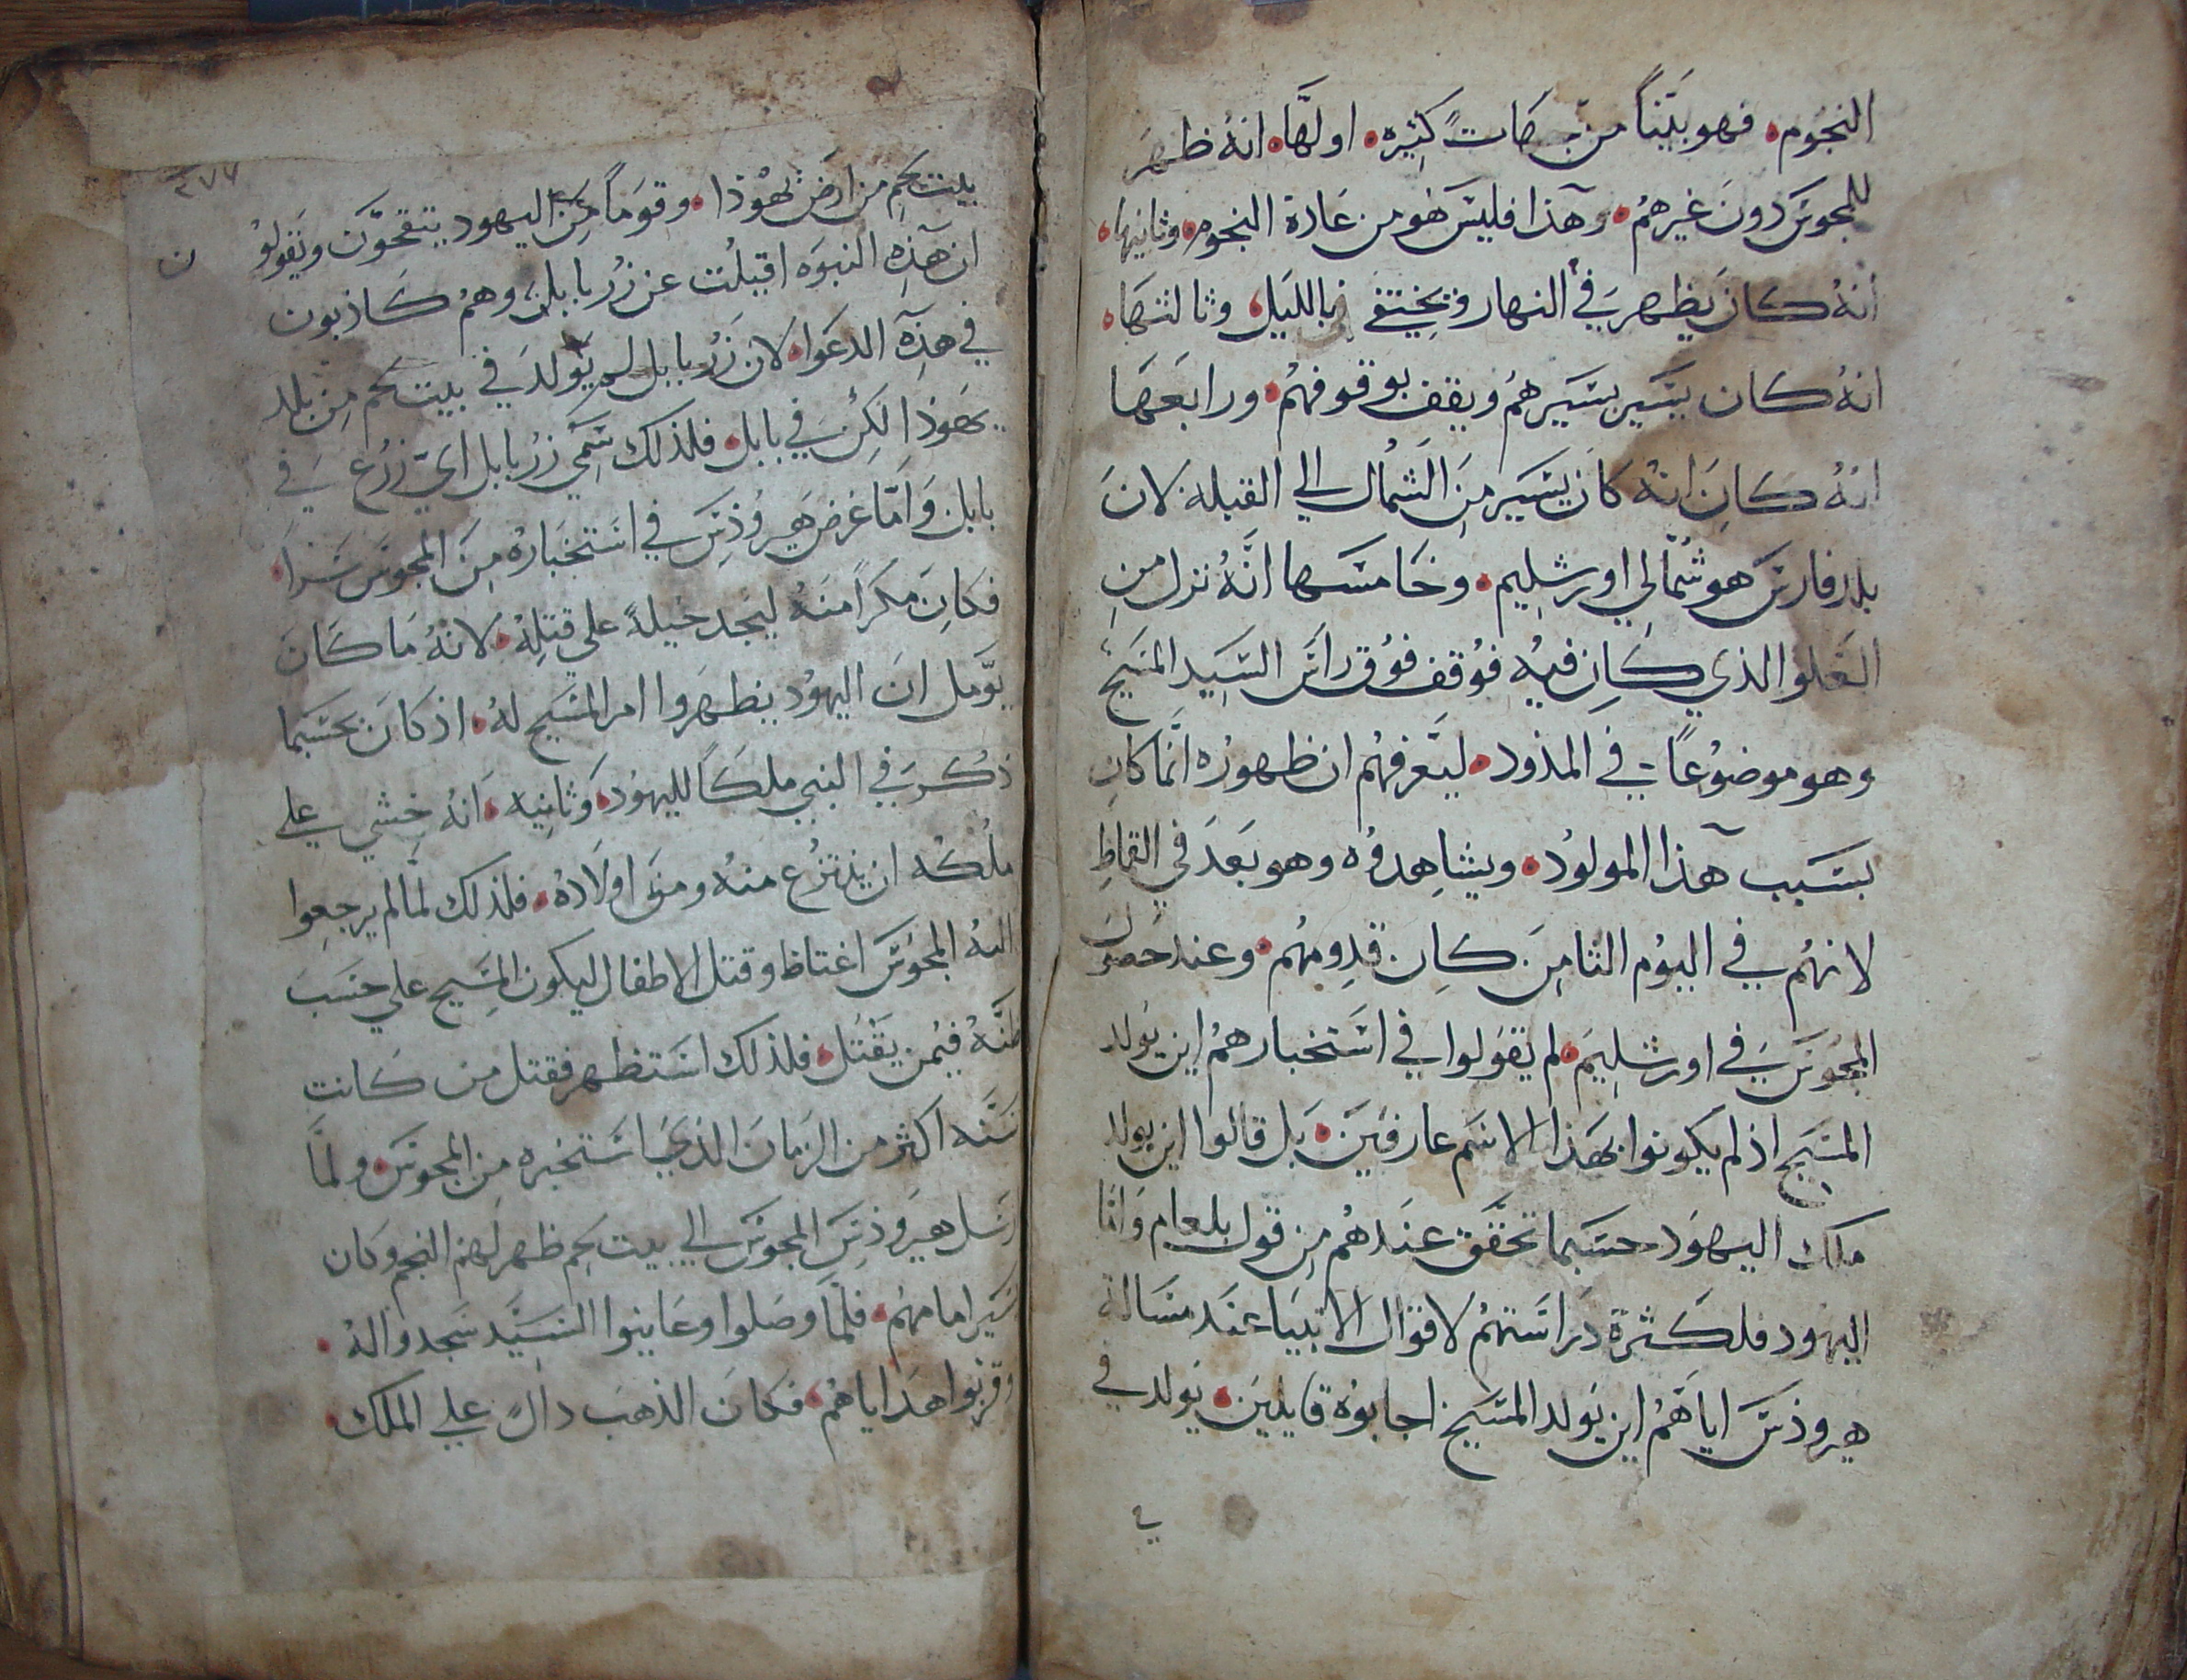 النجوم، فهو بيّناً من جهات كثيره، اولها، انهُ ظهر
للمجوس دون غيرهم، وهذا فليس هو من عادة النجوم، وثانيها،
انهُ كان يظهر في النهار ويختفي بالليل، وثالثها،
انهُ كان يسير بسيرهم ويقف بوقوفهم، ورابعها
انهُ كان انهُ كان يسير من الشمال الي القبله لان
بلد فارس هو شمالي اورشليم، وخامسها انّهُ نزل من
العلو الذي كان فيه فوقف فوق راس السيد المسيح
وهو موضوعاً في المذود، ليعرفهم ان ظهوره انما كان
بسبب هذا المولود، ويشاهدوه وهو بعد في القماط
لانهم في اليوم الثامن كان قدومهم، وعند حصول
المجوس في اورشليم، لم يقولوا في استخبارهم اين يولد
المسيح اذ لم يكونوا بهذا الاسم عارفين، بل قالوا اين يولد
ملك اليهود، حسبما تحقق عندهم من قول بلعام واما
اليهود فلكثرة دراستهم لاقوال الانبيا عند مسالة
هيروذس اياهم اين يولد المسيح اجابوه قايلين، يولد في
بيت لحم من ارض يهوذا، وقوماً من اليهود يتقحون ويقولون
ان هذه النبوه اقبلت عن زربابل، وهم كاذبون
في هذه الدعوا، لان زربابل لم يولد في بيت لحم من بلد
يهوذا لكن في بابل، فلذلك سمي زربابل اي زرع في
بابل، واما غرض هيروذس في استخباره من المجوس سراً،
فكان مكراً منه ليجد حيلةً علي قتله، لانهُ ما كان
يؤمل ان اليهود يظهروا امر المسيح لهُ، اذ كان بحسبما
ذكر في النبي ملكاً لليهود، وثانيه، انهُ خشي علي
ملكه ان ينتزع منهُ ومن اولاده، فلذلك لما لم يرجعوا
اليهُ المجوس اغتاظ وقتل الاطفال ليكون المسيح علي حسب
ظنّهُ فيمن يقتل، فلذلك استظهر فقتل من كانت
سنه اكثر من الزمان الذي استخبره من المجوس، ولما
رسل هيروذس المجوس الي بيت لحم ظهر لهم النجم وكان
يسير امامهم، فلما وصلوا وعاينوا السيد سجدوا لهُ،
وقربوا هداياهم، فكان الذهب دالً علي الملك،